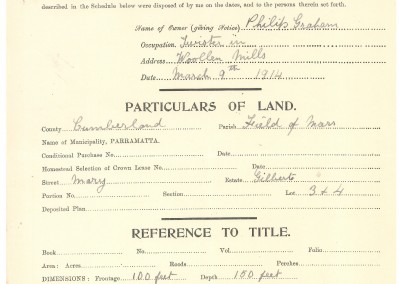 described in the Schedule below were disposed of by me on the dates, and to the persons therein set forth.
Name of Owner (giving Notice) Philip Graham
Occupation. Twister in
Address Woollen Mills
Date March 9th 1914.
PARTICULARS OF LAND.
County Cumberland Parish Field of Mars
Name of Municipality, PARRAMATTA.
Conditional Purchase No. Date
Homestead Selection of Crown Lease No. Date
Street Mary Estate Gilberts
Portion No. Section Lot 3 & 4
Deposited Plan
REFERENCE TO TITLE.
Book No. Vol. Folio
Area: Acres Roods Perches
DIMENSIONS: Frontage 100 feet Depth 150 feet